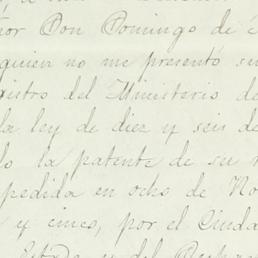 ñor Don Domingo de
quien no me presentó su
istro del Ministerio de
la ley de diez y seis de
lo la patente de su
pedida en ocho de No
y cinco, por el Ciuda
Estado y del Despac